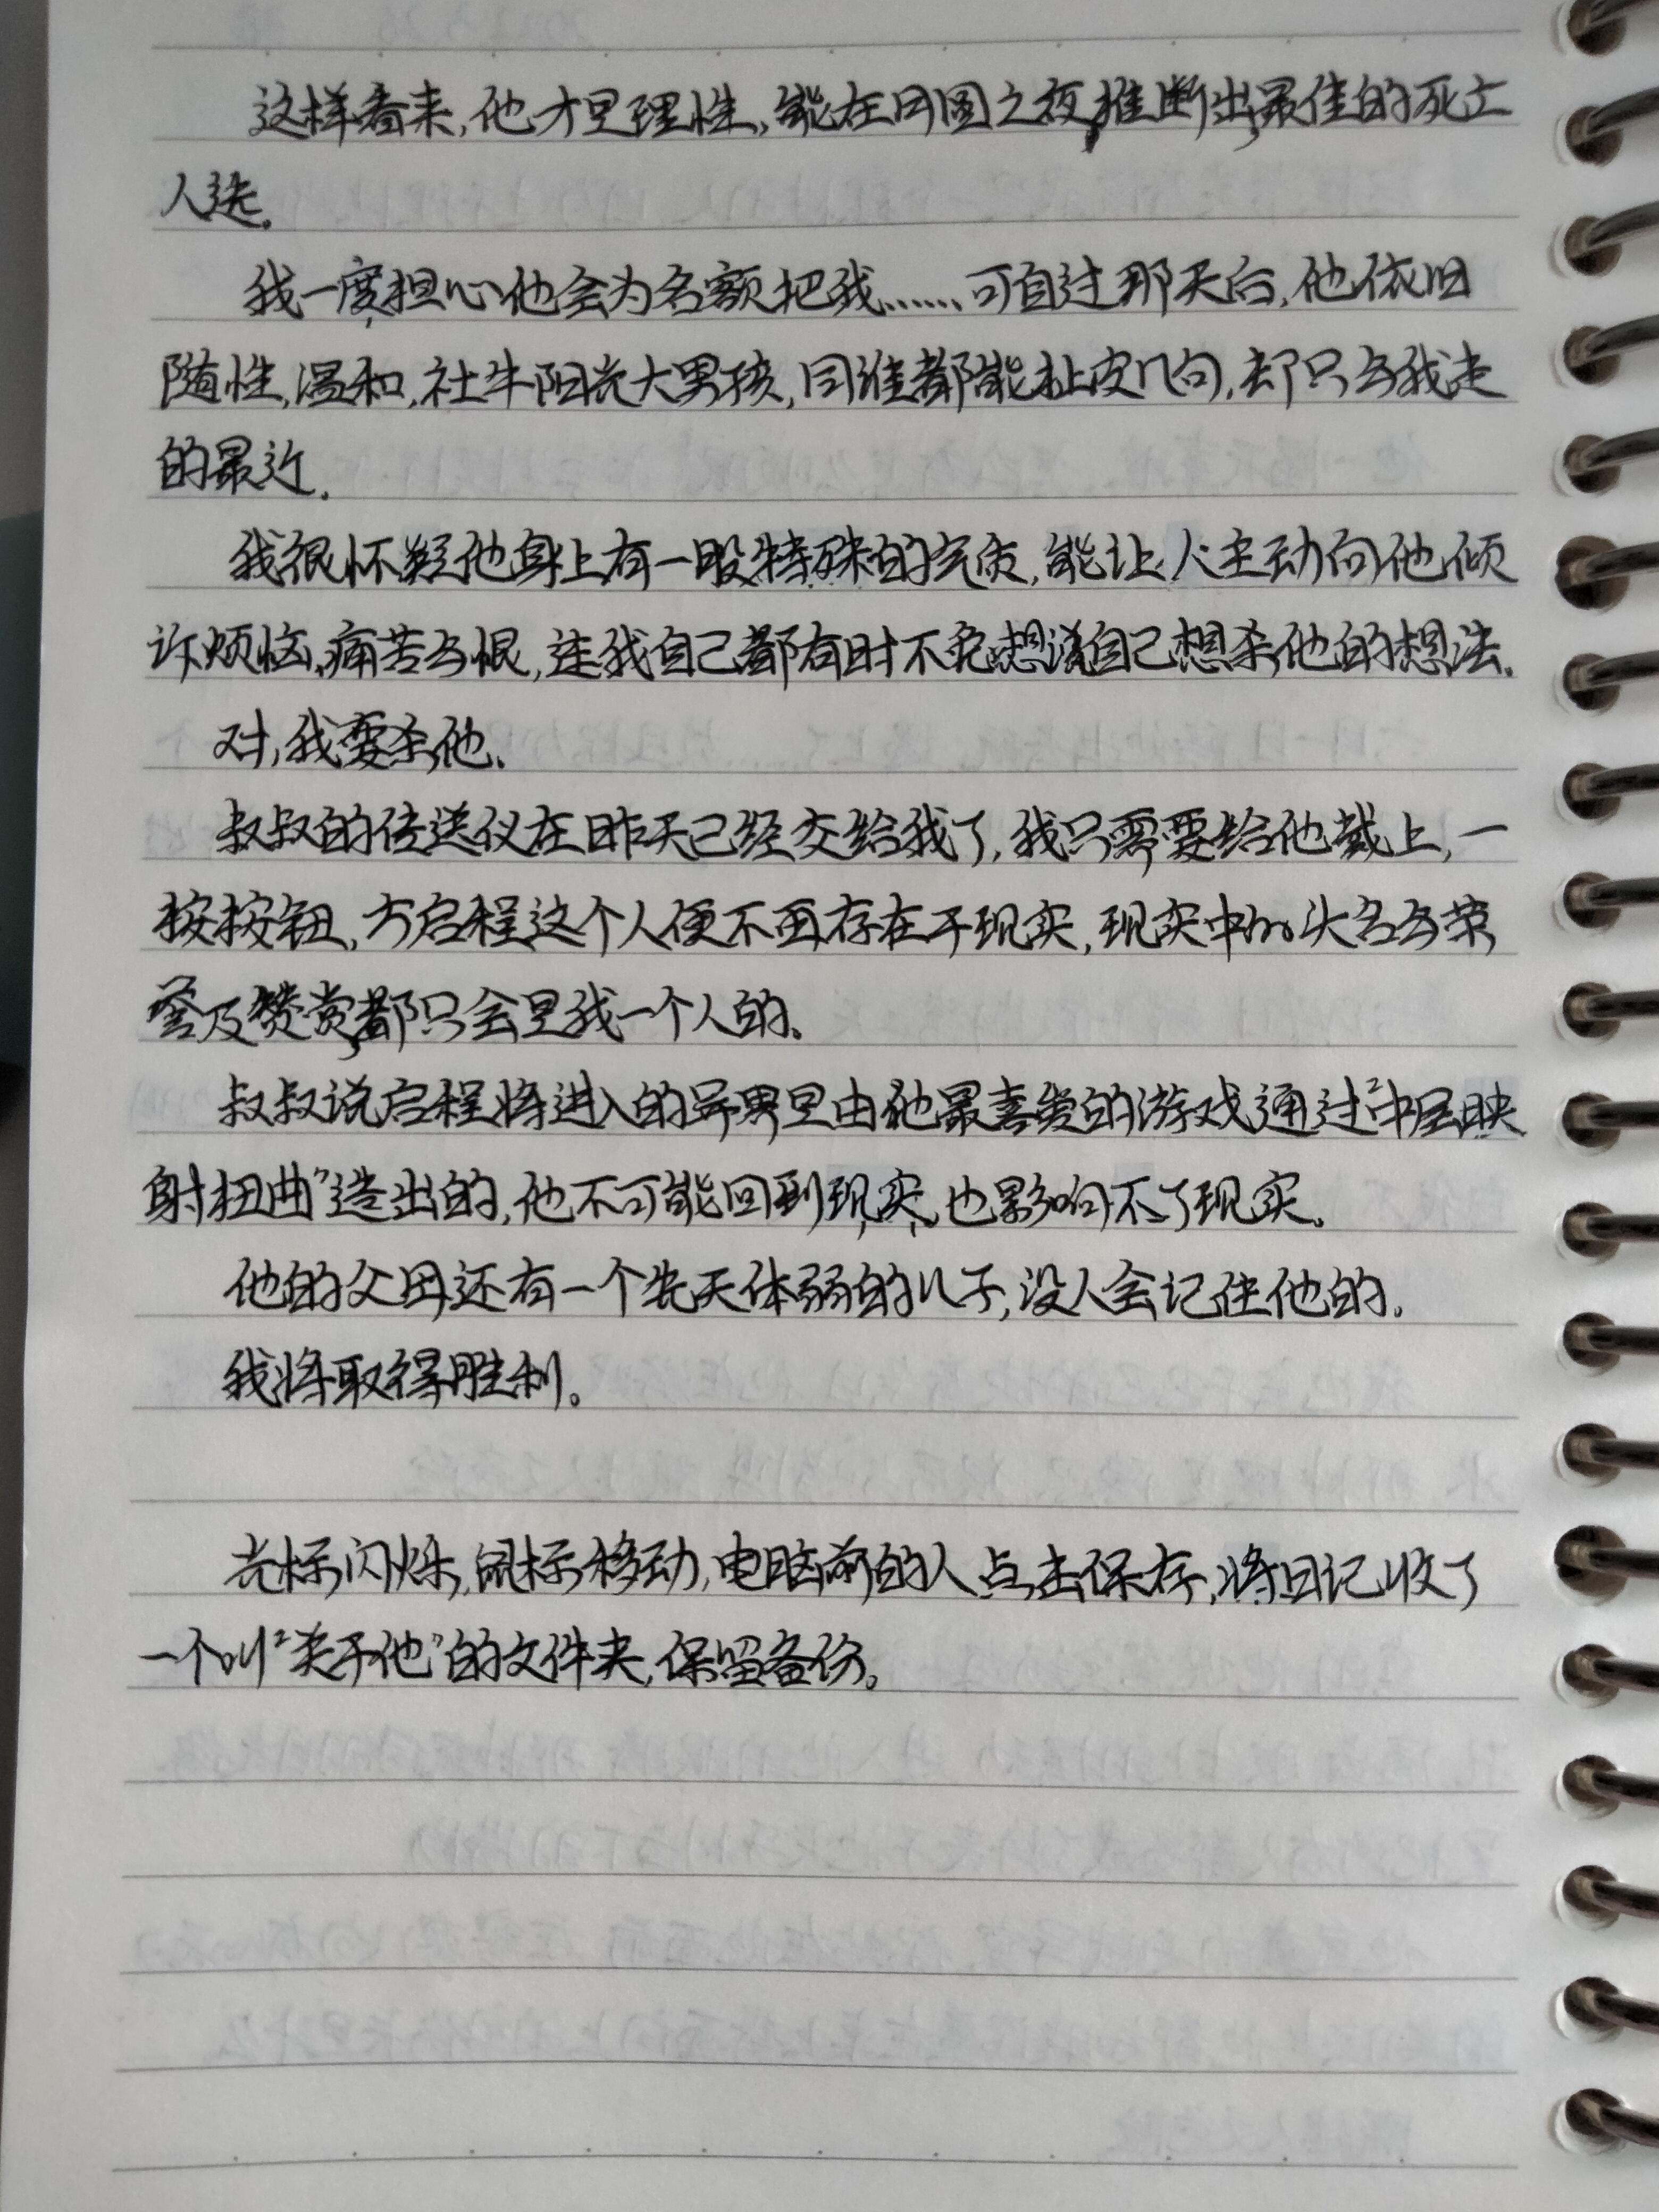 这样看来,他才是理性,能在月圆之夜推断出最佳的死亡
人选。
我一度担心他会为名额把我……可自过那天后,他依旧
随性,温和,社牛阳光大男孩,同谁都能扯皮几句,却只与我走
的最近.
我很怀疑他身上有一股特殊的气质,能让人主动向他倾
诉烦恼、痛苦与恨,连我自己都有时不免想说自己想杀他的想法.
对,我要杀他、
叔叔的传送仪在昨天已经交给我了,我只需要给他戴上,一
按按钮,方启程这个人便不再存在于现实,现实中的头名与荣
誉及赞赏都只会是我一个人的。
叔叔说启程将进入的异界是由他最喜爱的游戏通过“中层映
射扭曲”造出的,他不可能回到现实,也影响不了现实。
他的父母还有一个先天体弱的儿子,没人会记住他的.
我将取得胜利。
光标闪烁,鼠标移动,电脑前的人点击保存,将日记收了
一个叫“关于他”的文件夹,保留备份。